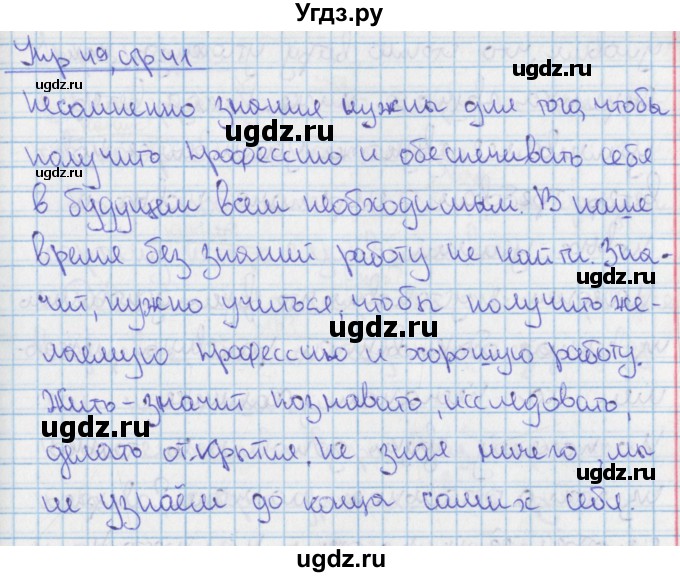 Угдз.ру
Упр 49, стр 41
ugdz.ru
Несомненно знания нужны для того, чтобы
ugdz.ru
ugdz.ru
получить профессию и обеспечивать себя
ugdz.ru
в будущем всем необходимым. В наше
ugdz.ru
время без знаний работу не найти. Зна-
ugdz.ru
ugdz.ru
чит, нужно учиться, чтобы получить же-
ugdz.ru
лаемую профессию и хорошую работу.
ugdz.ru
Жить - значит познавать, исследовать,
ugdz.ru
ugdz.ru
делать открытия. Не зная ничего, мы
ugdz.ru
не узнаём до конца самих себя.
ugdz.ru